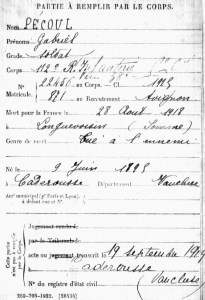 PARTIE À REMPLIR PAR LE CORPS.
Nom PÉCOUL
Prénoms Gabriel
Grade soldat
Corps 112e R.I.
N° 22450 au Corps. — Cl. 1918
Matricule. 821 au Recrutement Avignon
Mort pour la France le 28 Août 1918
à Longuevoisin (Somme)
Genre de mort Tué à l'ennemi
Né le 9 Juin 1898
à Caderousse Département Vaucluse
Arr municipal (pr Paris et Lyon),
à défaut rue et N°.
Cette partie
n'est pas à remplir
par le Corps.
Jugement rendu le
par le Tribunal de
acte ou jugement transcrit le 19 septembre 1919
à Caderousse
Vaucluse
N° du registre d'état civil